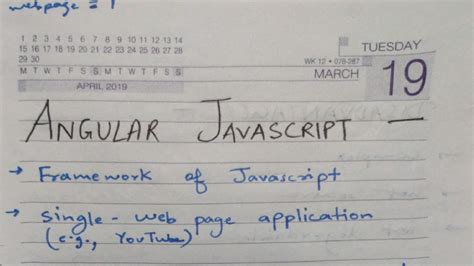 webpage = 1
1 2 3 4 5 6 7 8 9 10 11 12 13 14
15 16 17 18 19 20 21 22 23 24 25 26 27 28
29 30
M T W T F S S M T W T F S S
APRIL 2019
TUESDAY
WK 12 • 078-287
MARCH
19
ANGULAR JAVASCRIPT —
→ Framework of Javascript
→ single-web page application
(e.g., YouTube)